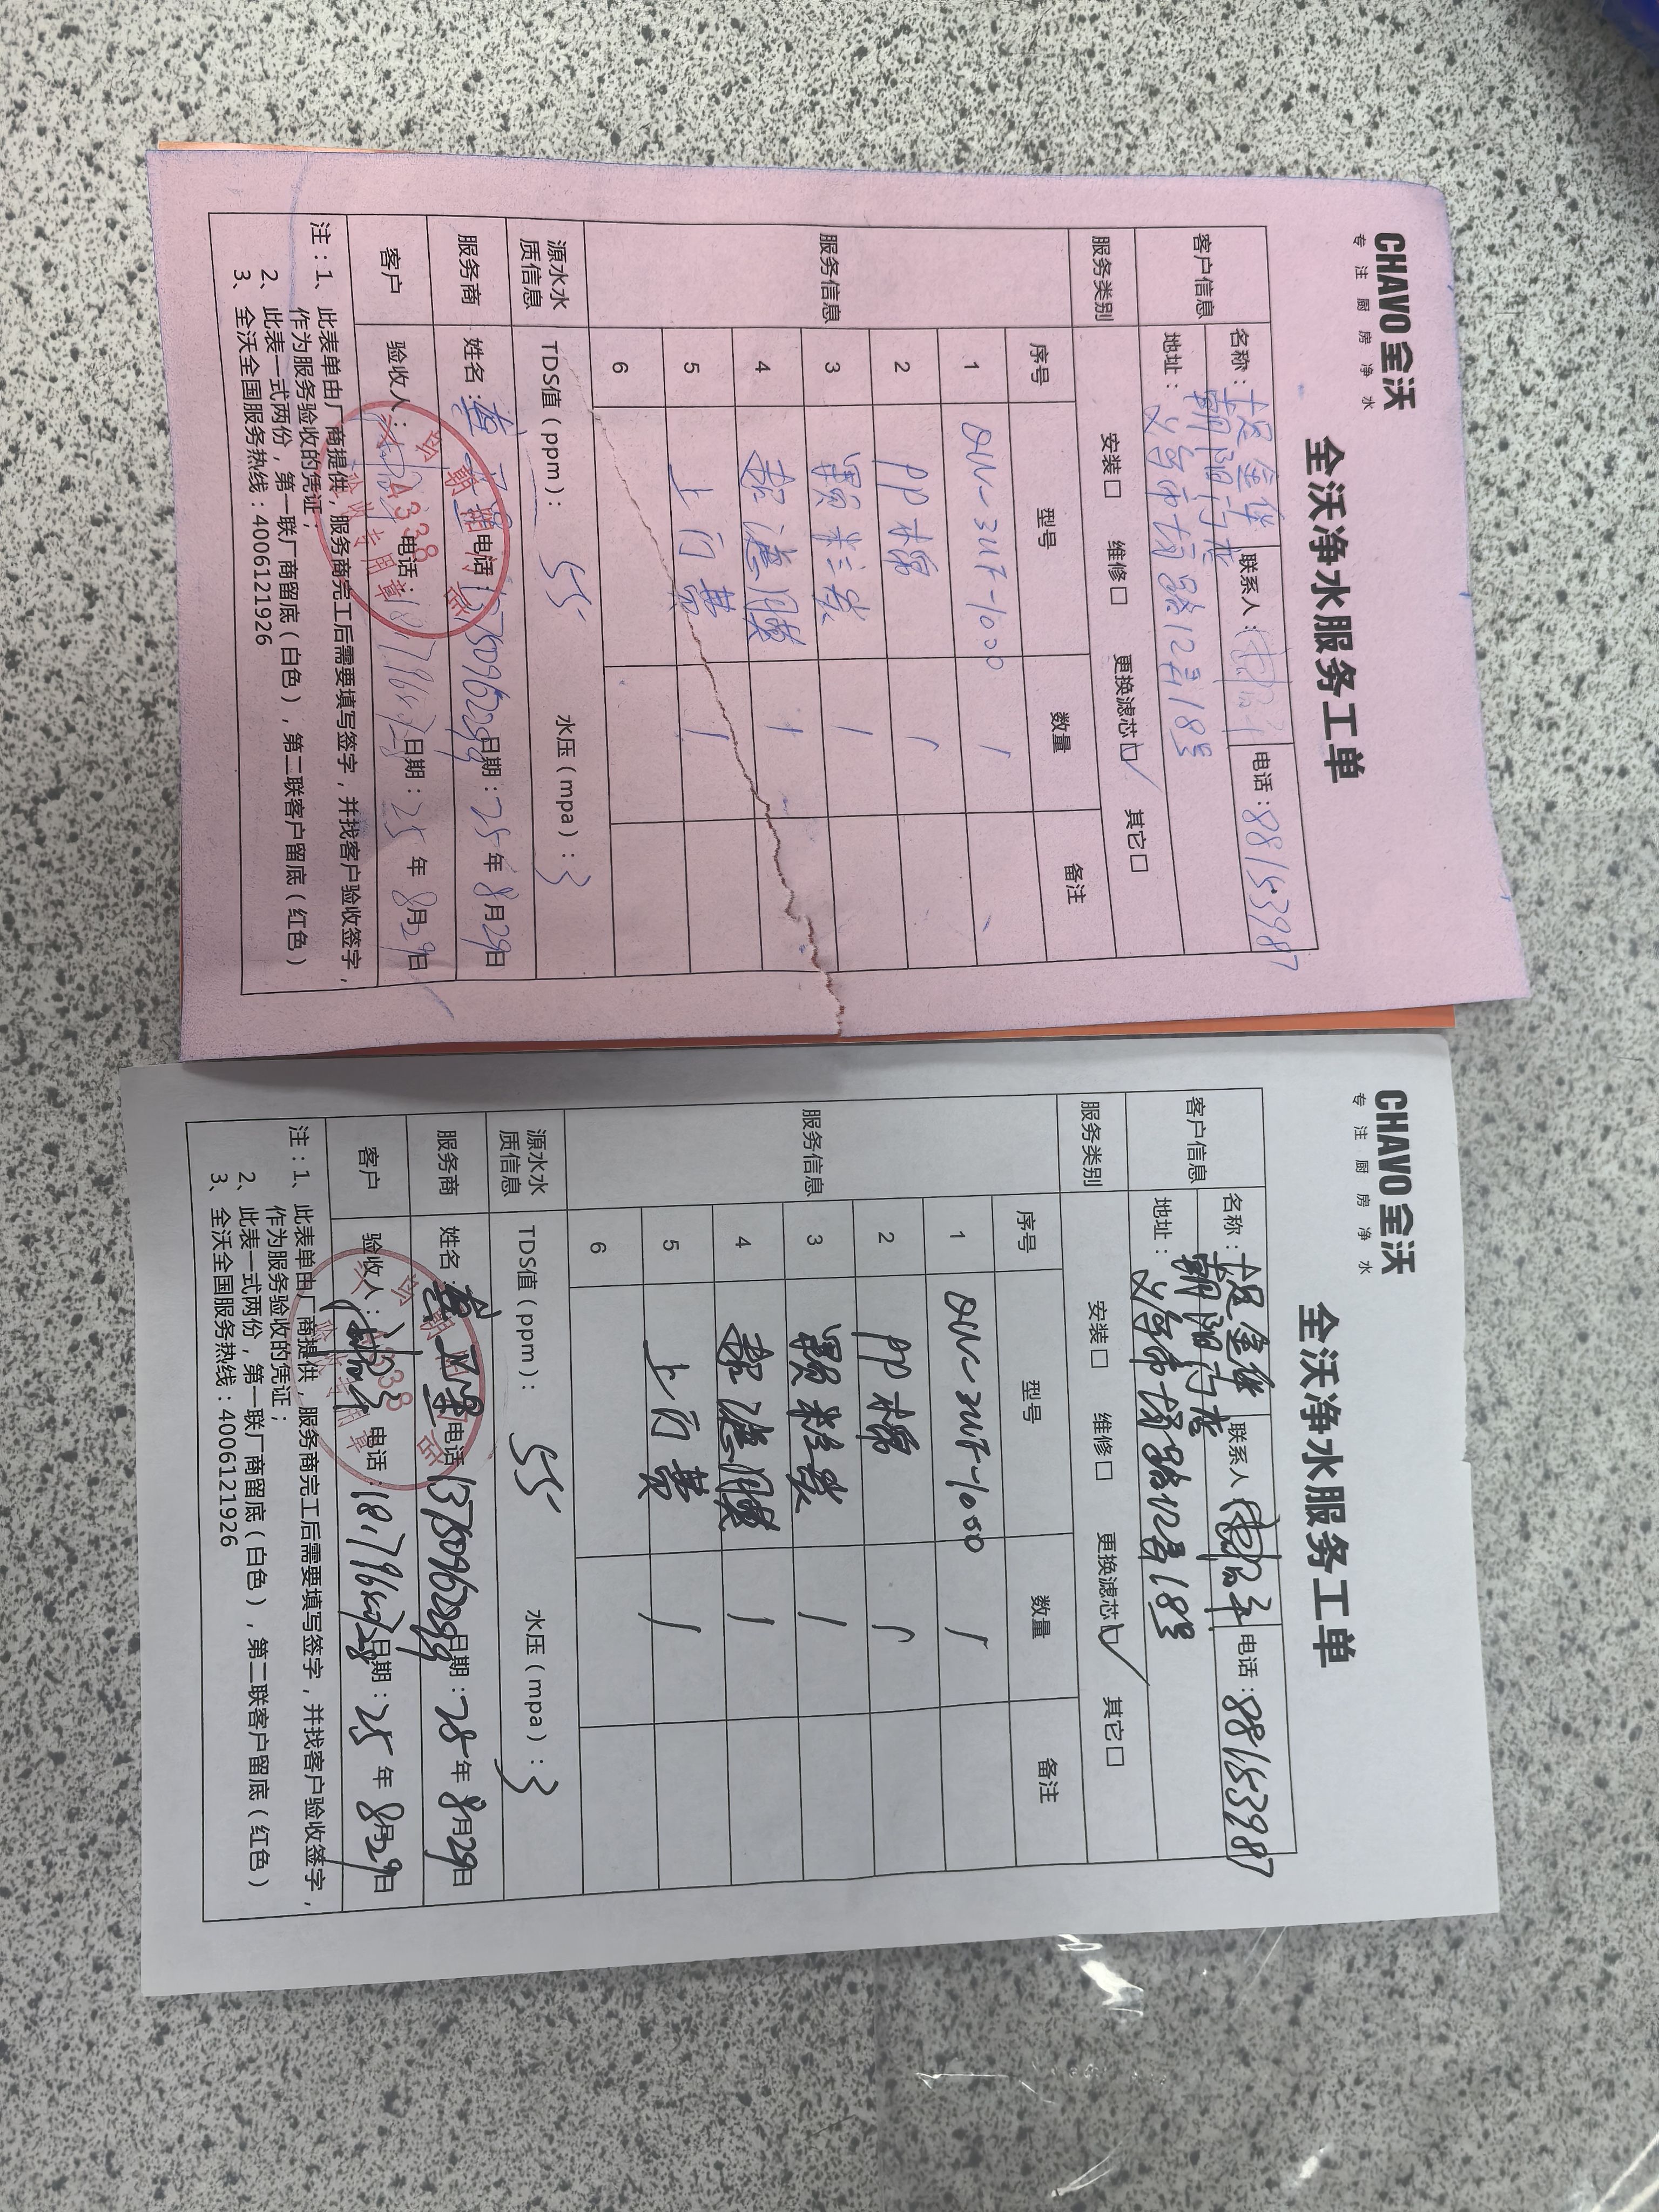 CHAVO 全沃
专注厨房净水
全沃净水服务工单
客户信息
名称：大堡堡
朝阳门店
联系人：
电话：88153987
地址：义乌市
路12号18号
服务类别
安装□ 维修□ 更换滤芯☑ 其它□
服务信息
序号 型号 数量 备注
1 QW-3UF-1000 1
2 PP棉 1
3 颗粒炭 1
4 超滤膜 1
5 上门费 1
6
源水水质信息
TDS值（ppm）：55 水压（mpa）：3
服务商
姓名： 电话：
日期：25年8月29日
客户
验收人： 电话：
日期：25年8月29日
A338
验收专用章
注：1、此表单由厂商提供，服务商完工后需要填写签字，并找客户验收签字，
作为服务验收的凭证；
2、此表一式两份，第一联厂商留底（白色），第二联客户留底（红色）
3、全沃全国服务热线：4006121926
CHAVO 全沃
专注厨房净水
全沃净水服务工单
客户信息
名称：大堡堡
朝阳门店
联系人：
电话：88153987
地址：义乌市
路12号18号
服务类别
安装□ 维修□ 更换滤芯☑ 其它□
服务信息
序号 型号 数量 备注
1 QW-3UF-1000 1
2 PP棉 1
3 颗粒炭 1
4 超滤膜 1
5 上门费 1
6
源水水质信息
TDS值（ppm）：55 水压（mpa）：3
服务商
姓名： 电话：
日期：25年8月29日
客户
验收人： 电话：
日期：25年8月29日
验收专用章
注：1、此表单由厂商提供，服务商完工后需要填写签字，并找客户验收签字，
作为服务验收的凭证；
2、此表一式两份，第一联厂商留底（白色），第二联客户留底（红色）
3、全沃全国服务热线：4006121926